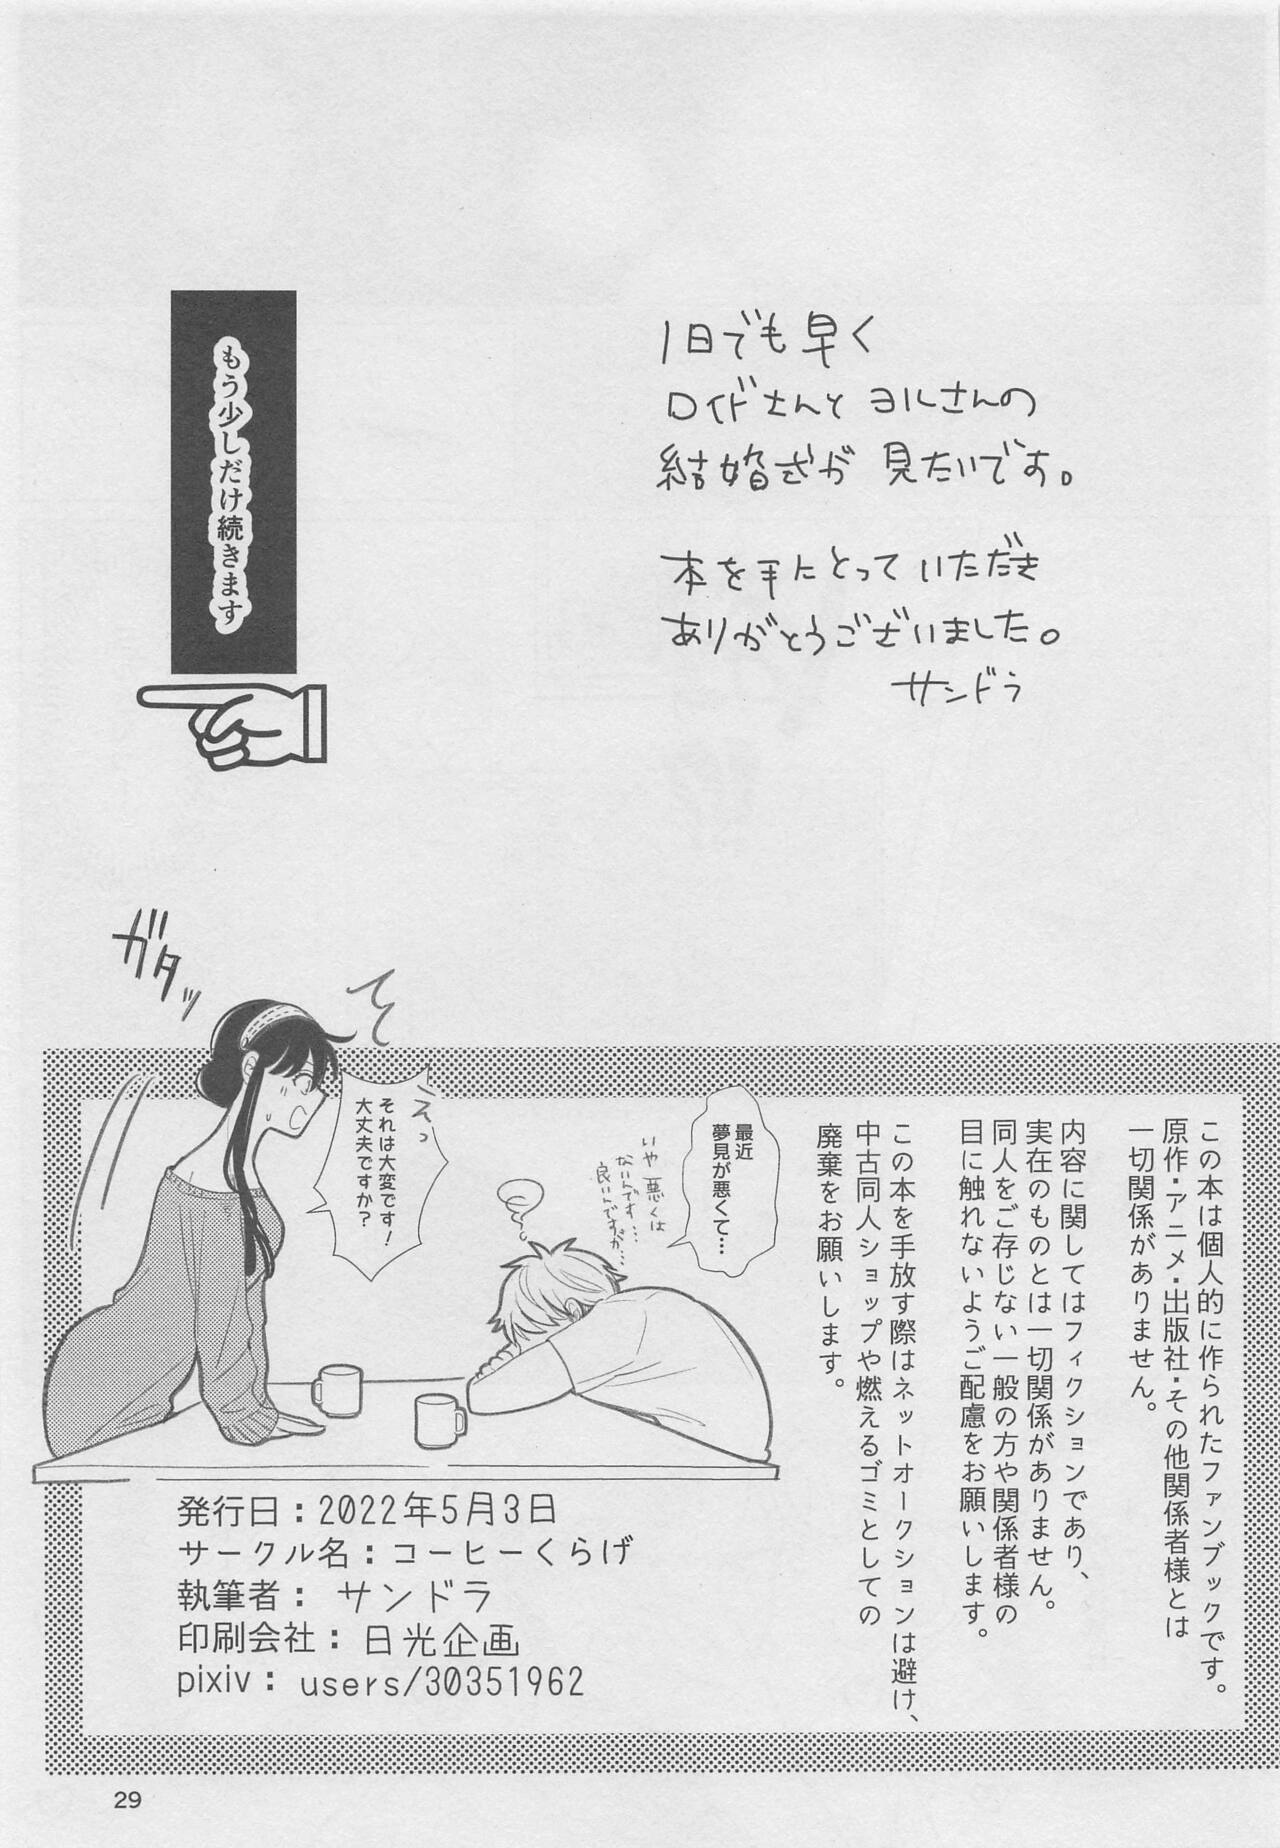 1日でも早く
ロイドさんとヨルさんの
結婚式が見たいです。
本を手にとっていただき
ありがとうございました。
サンドラ
もう少しだけ続きます
この本は個人的に作られたファンブックです。
原作・アニメ・出版社・その他関係者様とは
一切関係がありません。
内容に関してはフィクションであり、
実在のものとは一切関係がありません。
同人をご存じない一般の方や関係者様の
目に触れないようご配慮をお願いします。
この本を手放す際はネットオークションは避け、
中古同人ショップや燃えるゴミとしての
廃棄をお願いします。
最近
夢見が悪くて…
いや悪くは
ないんです…
良いんですが…
えっ
それは大変です!
大丈夫ですか?
ガタッ
発行日：2022年5月3日
サークル名：コーヒーくらげ
執筆者：サンドラ
印刷会社：日光企画
pixiv：users/30351962
29